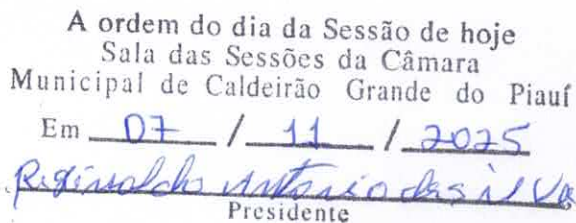 A ordem do dia da Sessão de hoje
Sala das Sessões da Câmara
Municipal de Caldeirão Grande do Piauí
Em 07 / 11 / 2025
Reginaldo Antonio da Silva
Presidente